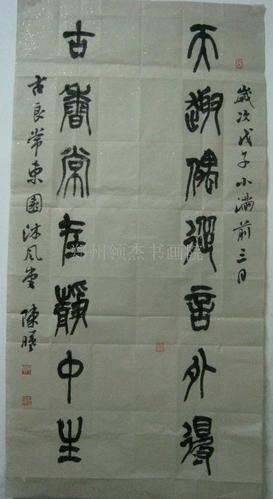 歲次戊子小滿前三日
天趣偶從言外得
古香常在靜中生
古良常東園沐風堂 陳
州领杰书画院